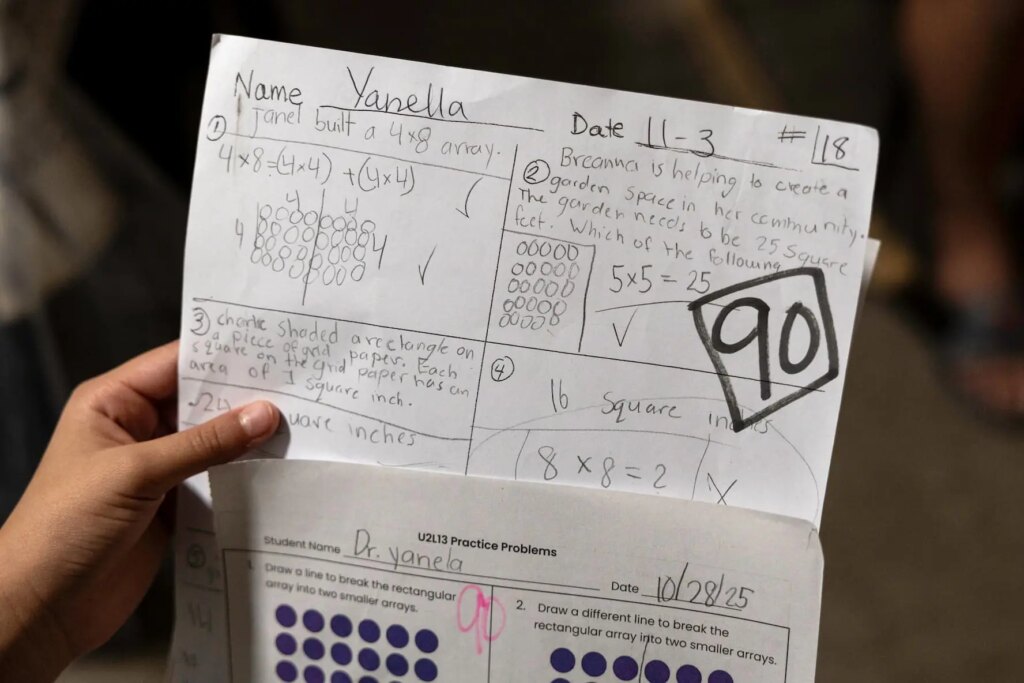 Name Yanella
Date 11-3 # 18
① Janel built a 4x8 array.
4x8=(4x4)+(4x4)
4 4
4 4
② Breanna is helping to create a
garden space in her community.
The garden needs to be 25 square
feet. Which of the following
5x5=25
90
③ charlie shaded a rectangle on
a piece of grid paper. Each
square on the grid paper has an
area of 1 square inch.
24 square inches
④
16 square inches
8 x 8 = ?
U2L13 Practice Problems
Student Name Dr. yanela
Date 10/28/25
1. Draw a line to break the rectangular
array into two smaller arrays.
90
2. Draw a different line to break the
rectangular array into two smaller arrays.